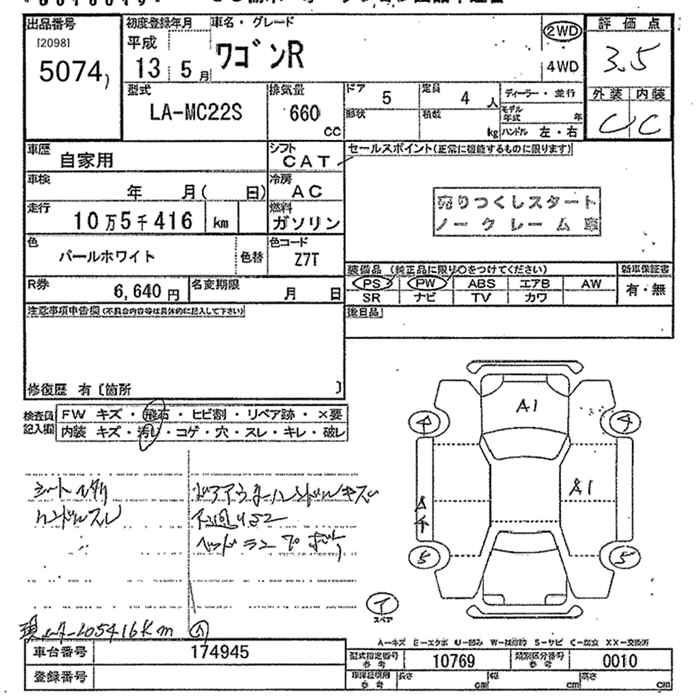 出品番号
[2098]
5074)
初度登録年月
平成
13 5月
車名・グレード
ワゴンR
2WD
4WD
評価点
3.5
外装 内装
C C
型式
LA-MC22S
排気量
660
CC
ドア
5
定員
4人
形状
積載
kg
ディーラー・並行
モデル年式 年
ハンドル 左・右
車歴
自家用
シフト
CAT
セールスポイント(正常に機能するものに限ります)
車検
年 月( 日)
冷房
AC
売りつくしスタート
ノークレーム車
走行
10万5千416 km
燃料
ガソリン
色
パールホワイト
色替
色コード
Z7T
装備品 (純正品に限り○をつけてください)
新車保証書
PS PW ABS エアB AW
SR ナビ TV カワ
有・無
R券
6,640円
名変期限
月 日
後日品
注意事項申告欄(不具合内容等は具体的に記入して下さい)
修復歴 有〔箇所 〕
検査員
記入欄
FW キズ・飛石・ヒビ割・リペア跡・×要
内装 キズ・汚レ・コゲ・穴・スレ・キレ・破レ
A1
A1
4
4
5
5
ハンドルスレ
現メーター105416Km
イ
スペア
A-キズ E-エクボ U-凹み W-補修跡 S-サビ C-腐食 XX-交換済
車台番号
174945
登録番号
型式指定番号
参考
10769
類別区分番号
参考
0010
車庫証明用
参考
長さ cm
幅 cm
高さ cm